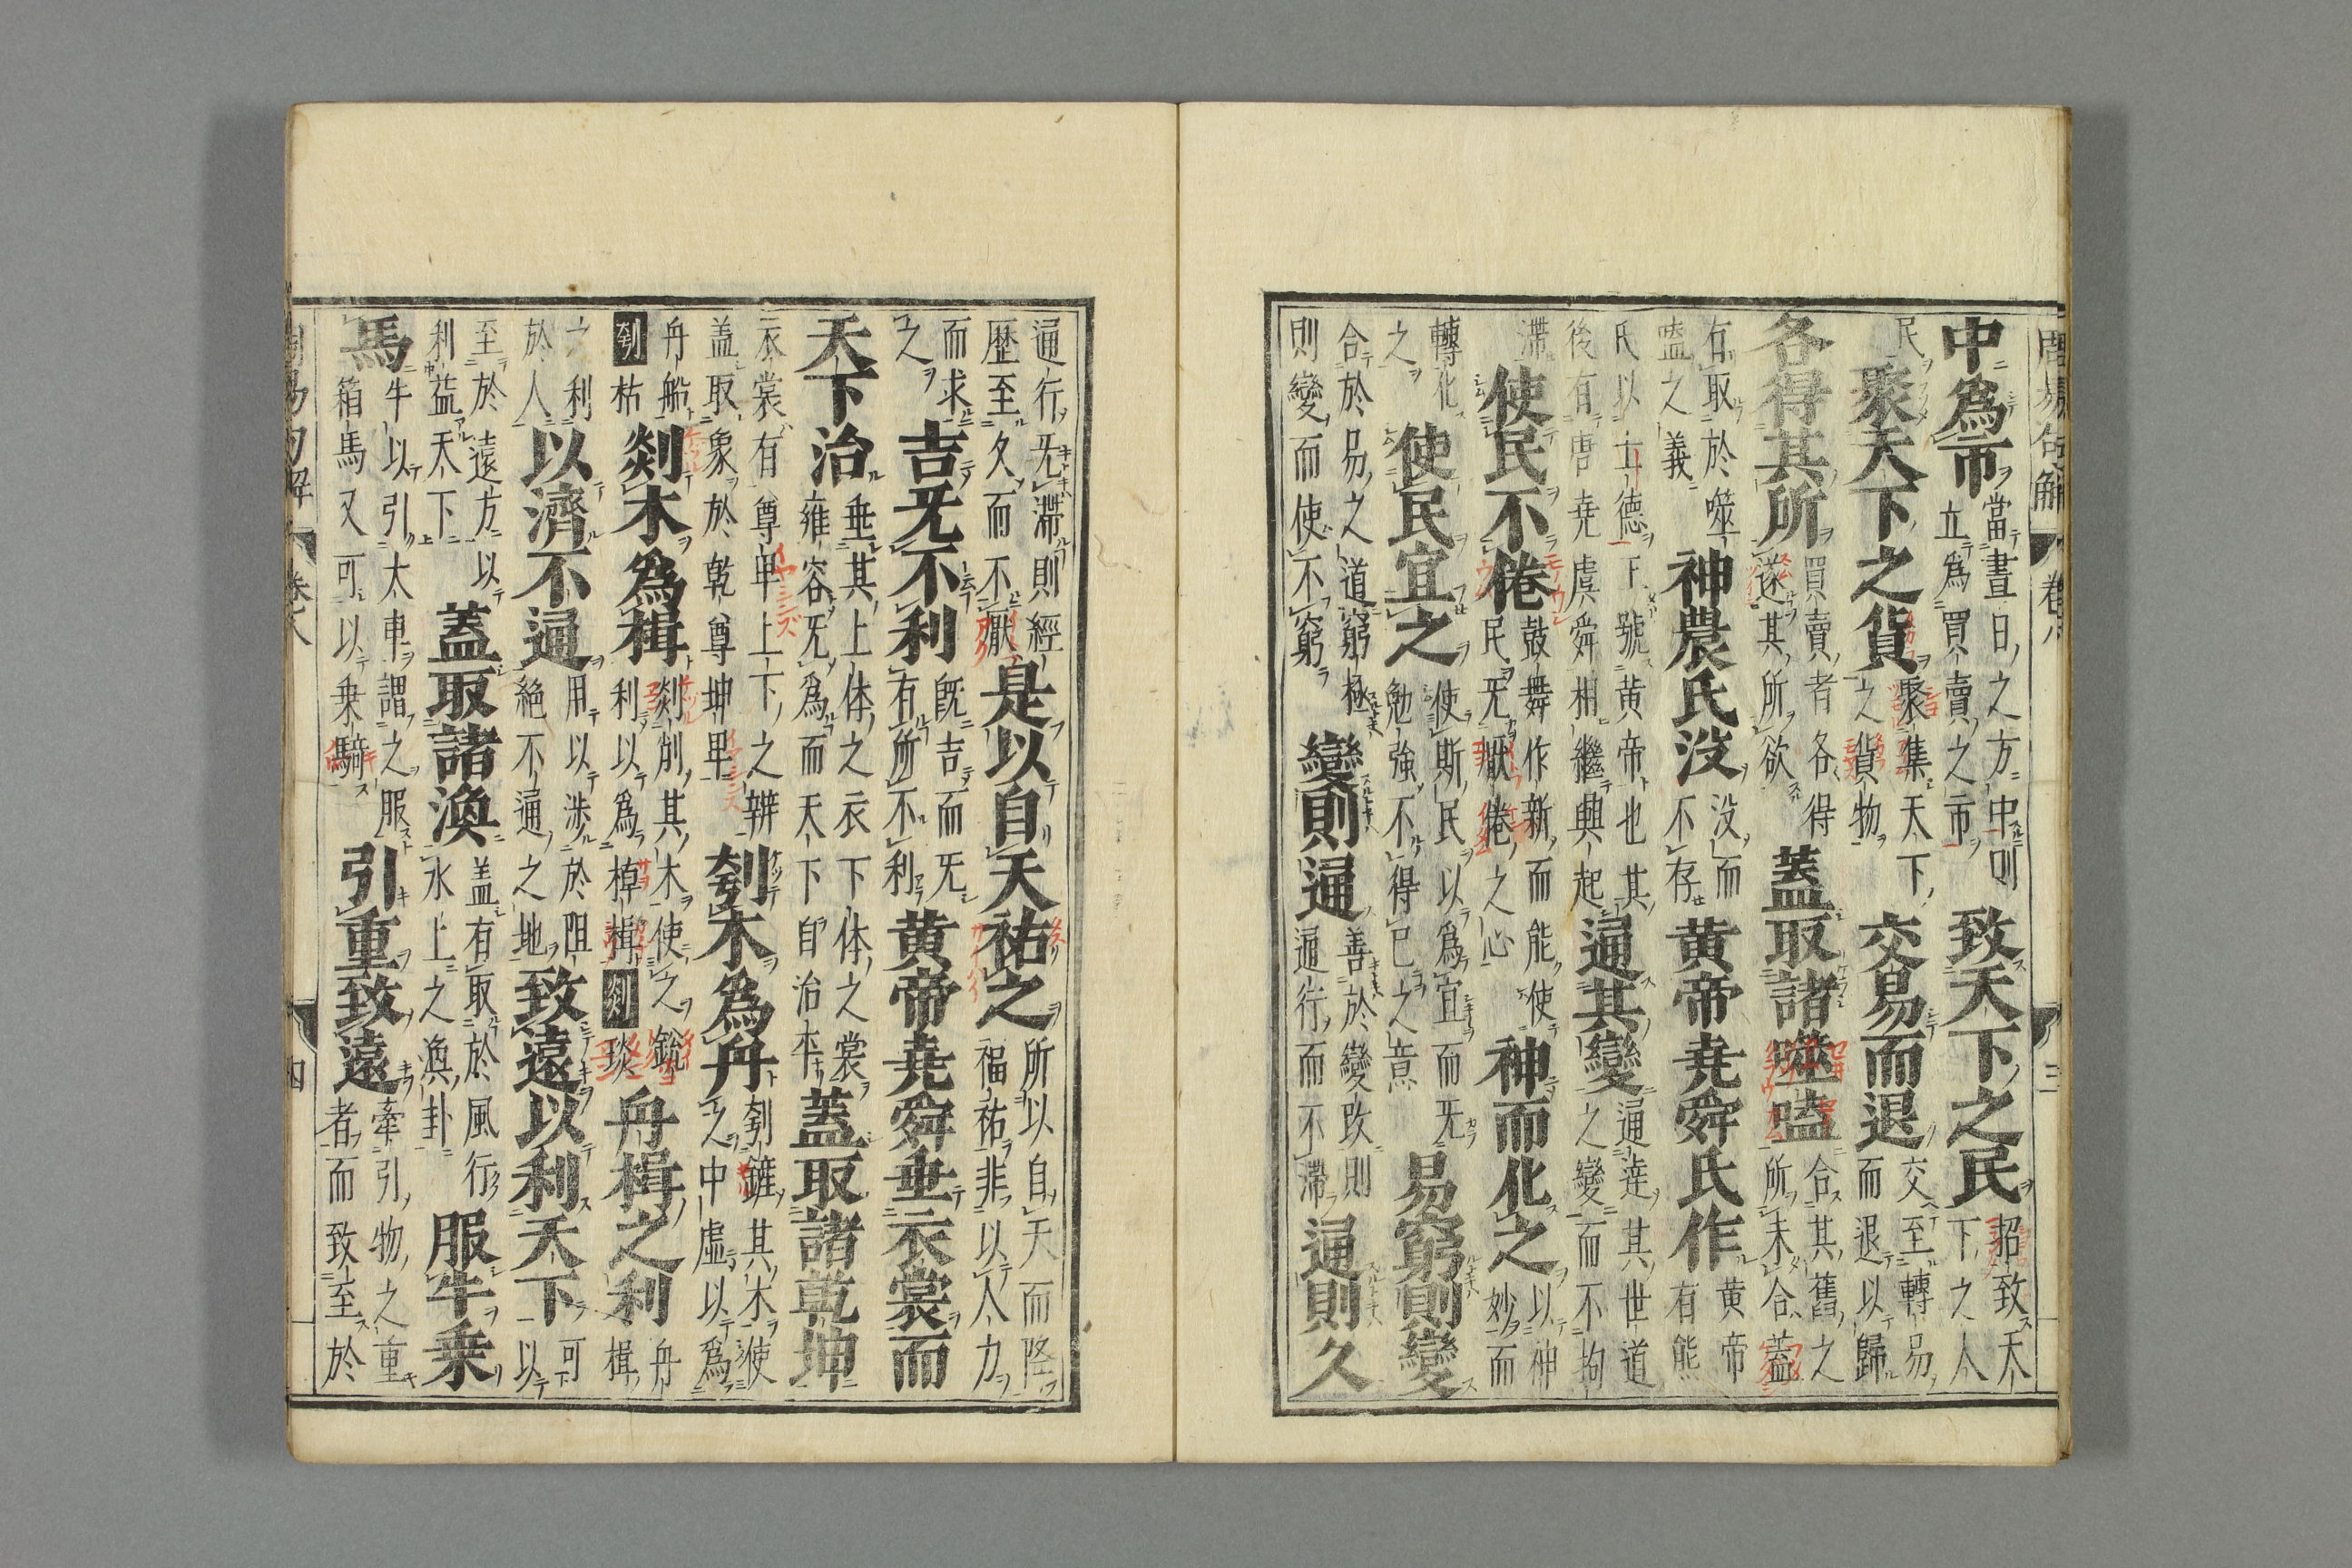 周易句解 卷八 三
中爲市當晝日之方中則立爲買賣之市致天下之民招致天下之人
民聚天下之貨聚集天下之貨物交易而退交至轉易而退以歸
各得其所買賣者各得遂其所欲蓋取諸噬嗑合其舊之所未合蓋
有取於噬嗑之義神農氏没没而不存黄帝堯舜氏作黄帝有熊
氏以土德下號黄帝也其後有唐堯虞舜相繼興起通其變通達其世道之變而不拘
滯使民不倦鼓舞作新而能使民无厭倦之心神而化之以神妙而
轉化之使民宜之使斯民以爲宜而无勉強不得已之意易窮則變
合於易之道窮極則變而使不窮變則通善於變改則通行而不滯通則久
通行无滯則經歷至久而不厭是以自天祐之所以自天而降福祐非以人力
而求之吉无不利既吉而无有所不利黄帝堯舜垂衣裳而
天下治垂其上体之衣下体之裳雍容无爲而天下自治本蓋取諸乾坤
衣裳有尊卑上下之辨盖取象於乾尊坤卑刳木爲舟刳其木使之中虚以爲
舟船刳枯剡木爲楫剡削其木使之鋭利以爲棹楫剡琰舟楫之利舟楫
之利於人以濟不通用以渉於阻絶不通之地致遠以利天下可以
至於遠方以利益天下蓋取諸渙盖有取於風行水上之渙卦服牛乗
馬牛以引大車謂之服箱馬又可以乗騎引重致遠牽引物之重者而致至於
周易句解 卷八 四